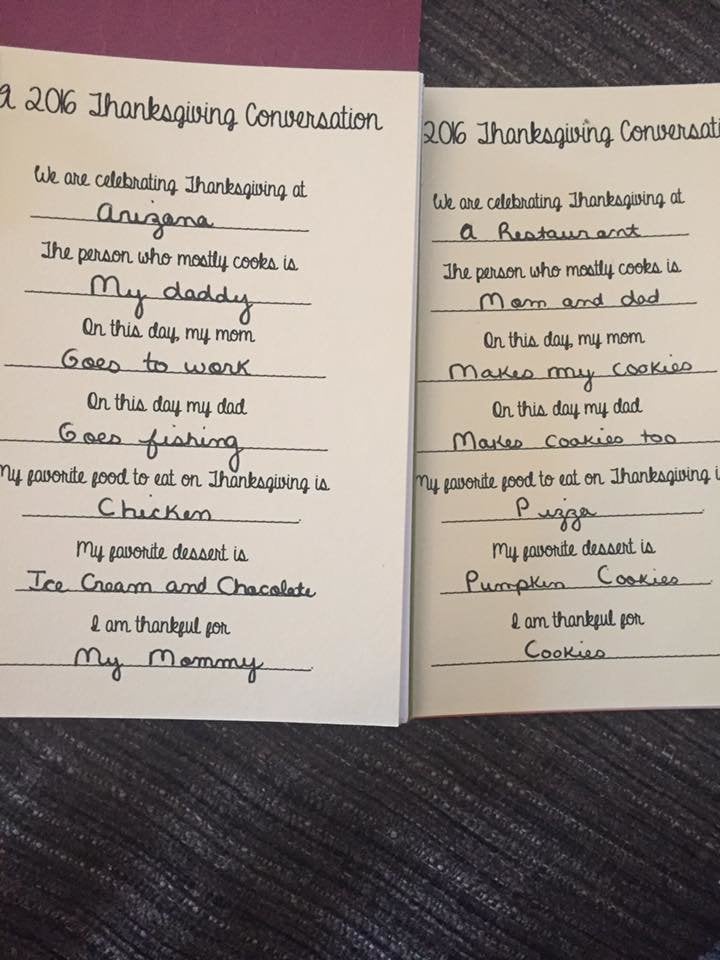 a 2016 Thanksgiving Conversation
We are celebrating Thanksgiving at
Arizona
The person who mostly cooks is
My daddy
On this day, my mom
Goes to work
On this day my dad
Goes fishing
My favorite food to eat on Thanksgiving is
Chicken
My favorite dessert is
Ice Cream and Chocolate
I am thankful for
My Mommy
2016 Thanksgiving Conversati
We are celebrating Thanksgiving at
A Restaurant
The person who mostly cooks is
Mom and dad
On this day, my mom
Makes my cookies
On this day my dad
Makes cookies too
My favorite food to eat on Thanksgiving i
Pizza
My favorite dessert is
Pumpkin Cookies
I am thankful for
Cookies